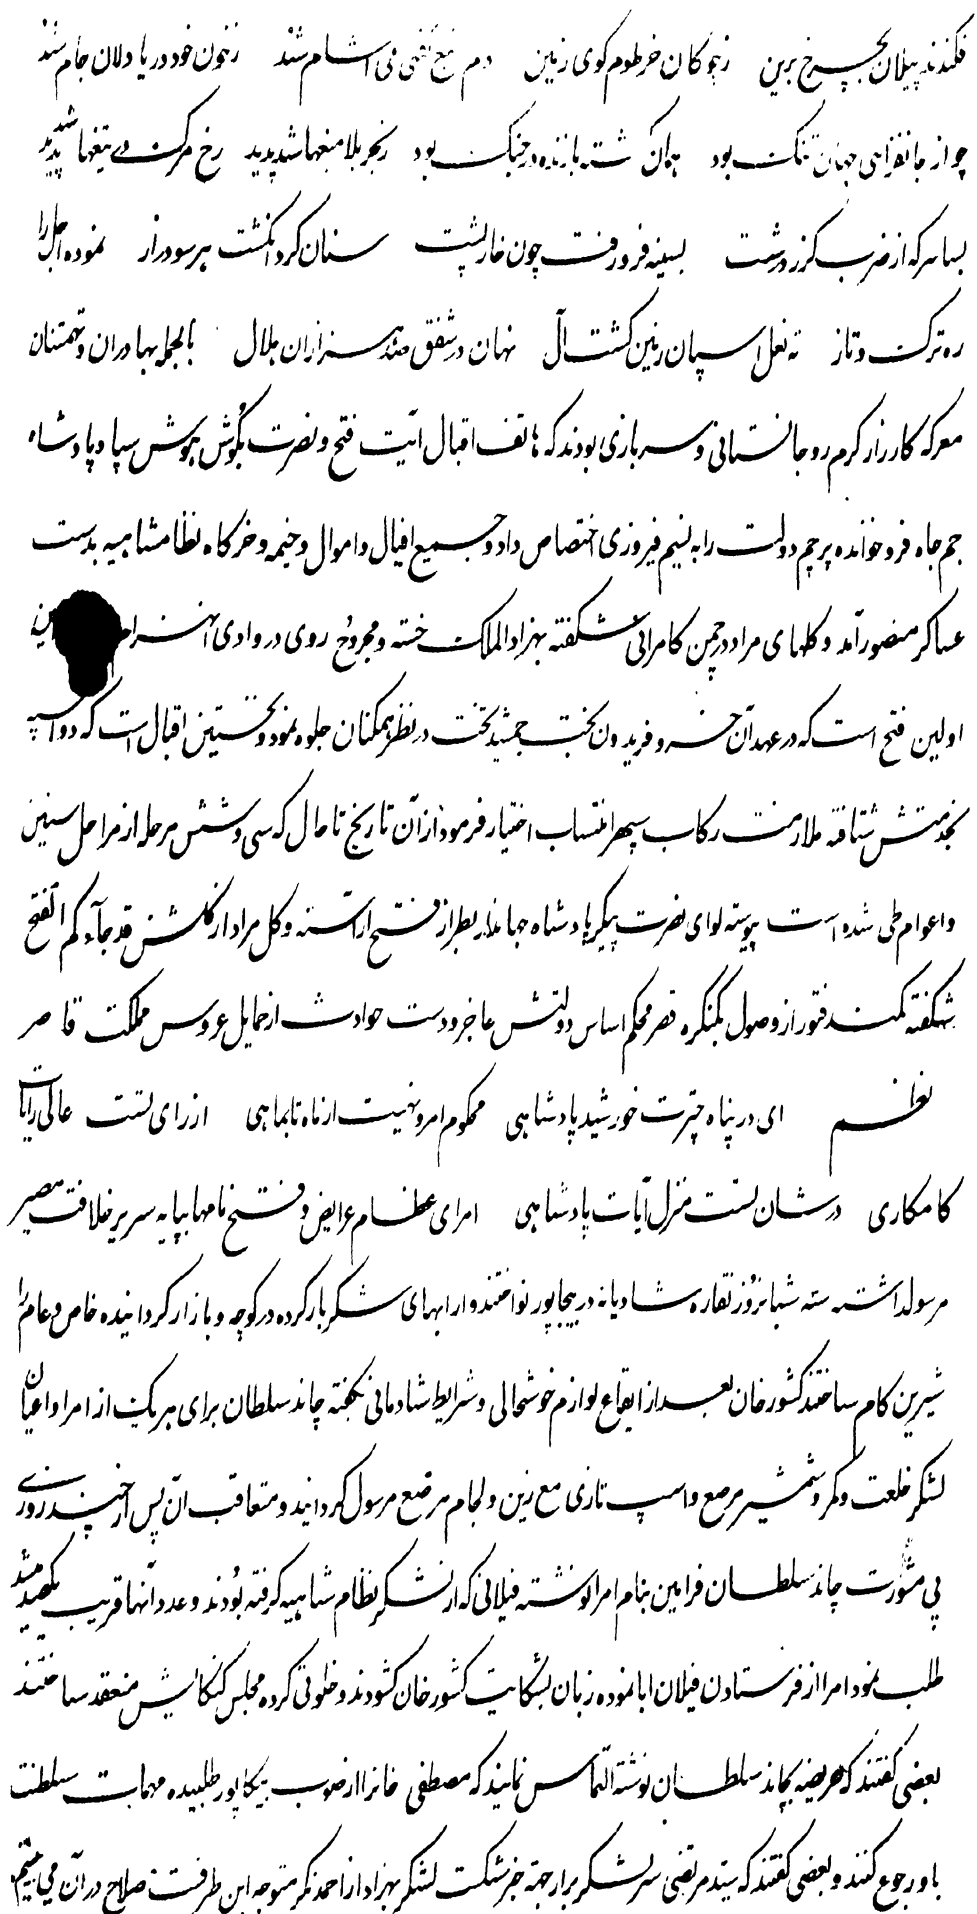 فکندند پیلان بچرخ برین زچوکان خرطوم کوی زمین دم تیغ نفعی می اشام شد زخون خود دریا دلان جام شد
چو از جانفزاهی جهان تنک بود همان کشته بازنده در جنک بود زبحر بلا منغها شد پدید رخ مرک در تیغها شد پدید
بسا سر که از ضرب کرز درشت بسینه فرو رفت چون خارپشت سنان کرد انکشت هر سو دراز نموده اجل را
ره ترکت و تاز ته نعل اسپان زمین کشت آل نهان در شفق صد هزاران هلال بالجمله بهادران و تهمتنان
معرکه کارزار کرم رو جانستانی و سربازی بودند که هاتف اقبال آیت فتح و نصرت بکوش هوش سپاه پادشاه
جم جاه فرو خوانده پرچم دولت را به نسیم فیروزی اختصاص داد و جمیع افیال و اموال و خیمه و خرکاه نظامشاهیه بدست
عساکر منصور آمد و کلهای مراد در چمن کامرانی شکفته بهزاد الملک خسته و مجروح روی در وادی انهزام
اولین فتح است که در عهد آن خسرو فریدون بخت جمشید تخت در نظر همکنان جلوه نمود و نخستین اقبال است که دو اسپه
بخدمتش شتافته ملازمت رکاب سپهر انتساب اختیار فرمود از آن تاریخ تا حال که سی و شش مرحله از مراحل سنین
و اعوام طی شده است پیوسته لوای نصرت پیکر پادشاه جهاندار بطراز فتح اراسته و کل مراد از کلشن قد جآءکم الفتح
شکفته کمند فتور از وصول بکنکره قصر محکم اساس دولتش عاجز و دست حوادث از حمایل عروس مملکت قاصر
نظم ای در پناه چترت خورشید پادشاهی محکوم امر و نهیت از ماه تا بماهی از رای تست عالی رایات
کامکاری در شان تست منزل آیات پادشاهی امرای عظام عرایض و فتح نامها بپایه سریر خلافت مصیر
مرسول داشته سه شبانروز نقاره شادیانه در بیجاپور نواختند و ارابهای شکر بار کرده در کوچه و بازار کردانیده خاص و عام را
شیرین کام ساختند کشور خان بعد از ایقاع لوازم خوشحالی و شرایط شادمانی بکفته چاند سلطان برای هر یک از امرا و اعیان
لشکر خلعت و کمر و شمشیر مرصع و اسپ تازی مع زین و لجام مرصع مرسول کردانید و متعاقب ان پس از چند روزی
بی مشورت چاند سلطان فرامین بنام امرا نوشته فیلانی که از لشکر نظام شاهیه کرفته بودند و عدد آنها قریب بکصد میشد
طلب نمود امرا از فرستادن فیلان ابا نموده زبان بشکایت کشور خان کشودند و خلوتی کرده مجلس کنکایش منعقد ساختند
بعضی کفتند که عریضه بچاند سلطان نوشته التماس نمایند که مصطفی خانرا از صوب بیکاپور طلبیده مهمات سلطنت
باو رجوع کنند و بعضی کفتند که سید مرتضی سر لشکر برار جهة جبر شکست لشکر بهزاد از احمد نکر متوجه این طرفست صلاح در آن می بینیم